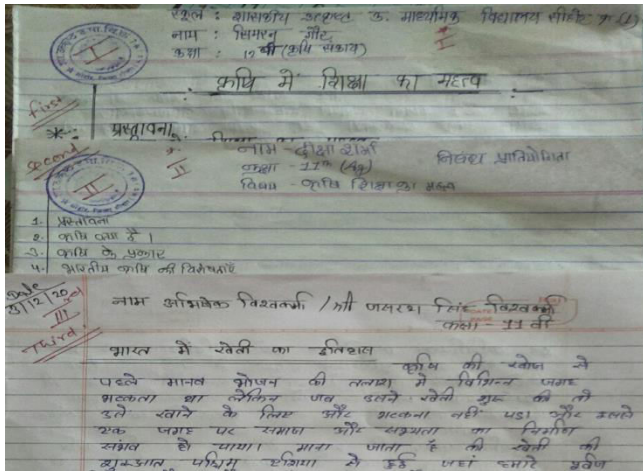 स्कूल : शासकीय उत्कृष्ट उ. माध्यमिक विद्यालय सीहोर
नाम : सिमरन गौर
कक्षा : 12 वी (कृषि संकाय)
I
कृषि में शिक्षा का महत्व
First
प्रस्तावना
Second
II
नाम - दीक्षा शर्मा
कक्षा - 11th (Ag)
निबंध प्रतियोगिता
विषय - कृषि शिक्षा का महत्व
1. प्रस्तावना
2. कृषि क्या है ।
3. कृषि के प्रकार
4. भारतीय कृषि की विशेषताएं
Date
III
Third
नाम अभिषेक विश्वकर्मा / श्री जसरथ सिंह विश्वकर्मा
कक्षा - 11 वी
भारत में खेती का इतिहास
कृषि की खोज से
पहले मानव भोजन की तलाश में विभिन्न जगह
भटकता था लेकिन जब उसने खेती शुरू की तो
उसे खाने के लिए और भटकना नहीं पडा और उसने
एक जगह पर समाज और सभ्यता का निर्माण
संभव हो पाया। माना जाता है की खेती की
शुरुआत पश्चिम एशिया से हुई जहां हमारे पूर्वज